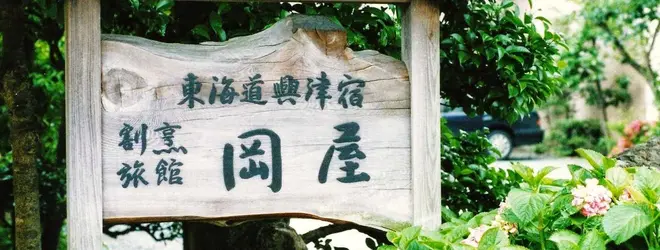 東海道興津宿
割烹
旅館
岡屋